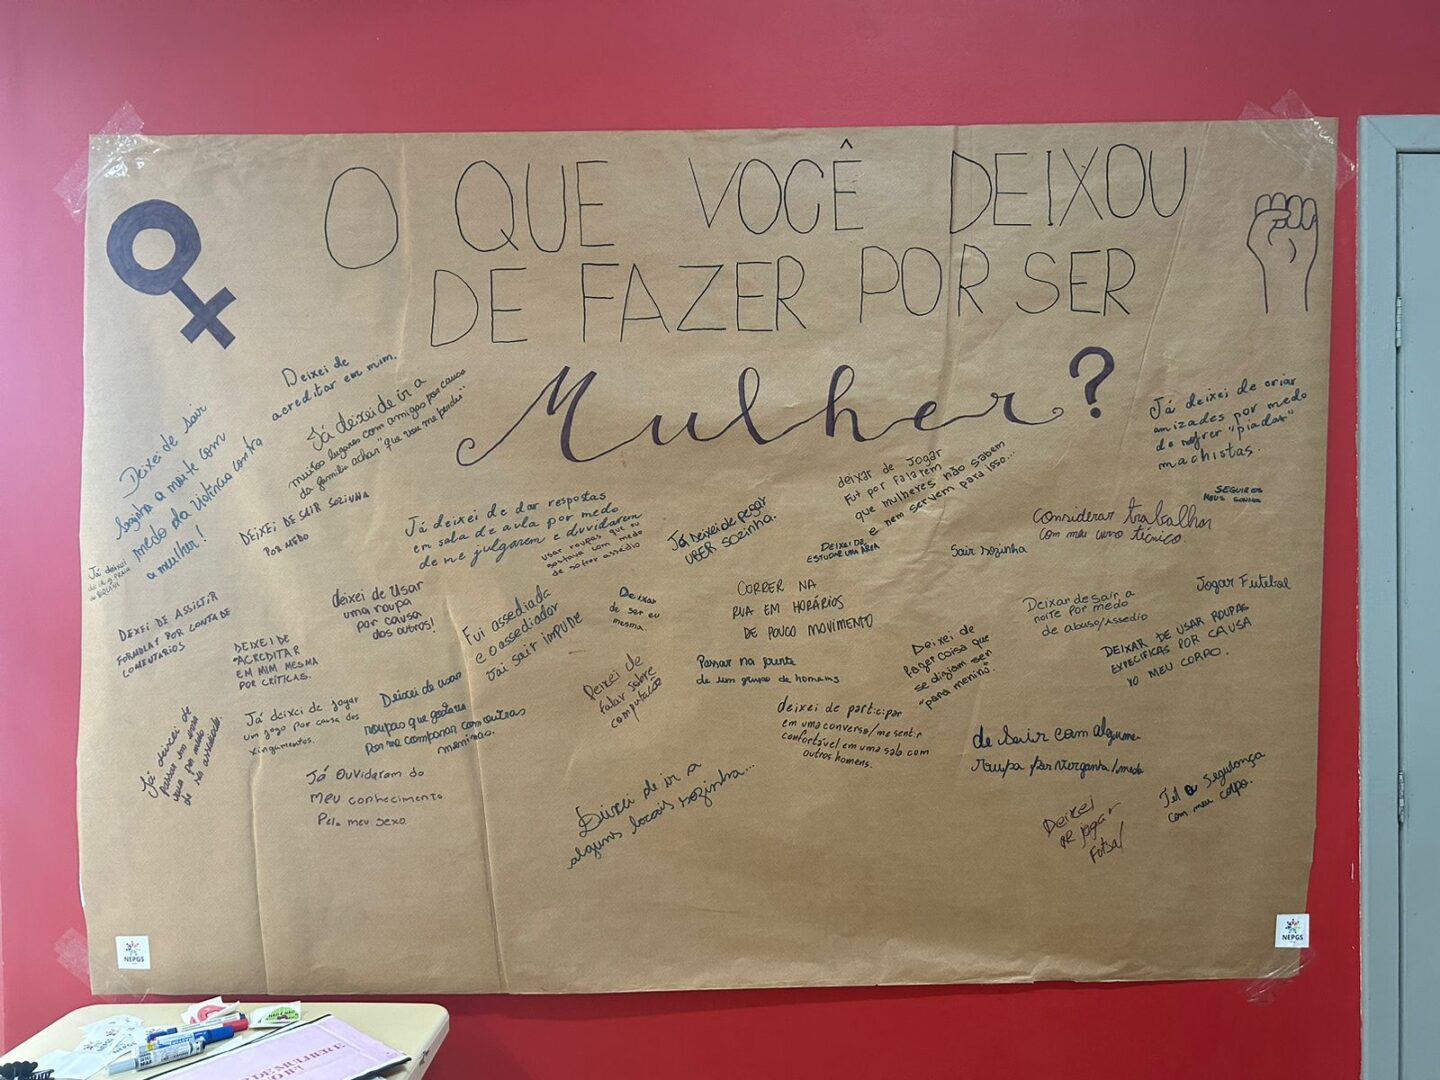 O QUE VOCÊ DEIXOU
DE FAZER POR SER
Mulher?
Deixei de
acreditar em mim.
Já deixei de ir a
muitos lugares com amigas por causa
da família achar "que vou me perder"
Deixei de sair
sozinha a noite com
medo da violência contra
a mulher!
DEIXEI DE SAIR SOZINHA
POR MEDO
Já deixei de criar
amizades por medo
de sofrer "piadas"
machistas.
SEGUIR OS
MEUS SONHOS
Já deixei de dar respostas
em sala de aula por medo
de me julgarem e duvidarem
usar roupas que eu
gostava com medo
de sofrer assédio
Já deixei de pegar
UBER SOZINHA.
deixar de jogar
FUT por falarem
que mulheres não sabem
e nem servem para isso...
DEIXEI DE
ESTUDAR UMA ÁREA
Sair sozinha
Considerar trabalhar
com meu curso técnico
Já deixei
de ir a PRAIA
de BIQUÍNI
DEIXEI DE ASSISTIR
FORMULA 1 POR CONTA DE
COMENTÁRIOS
deixei de usar
uma roupa
por causa
dos outros!
Fui assediada
e o assediador
vai sair impune
Deixar
de ser eu
mesma.
CORRER NA
RUA EM HORÁRIOS
DE POUCO MOVIMENTO
Jogar Futebol
Deixar de sair a
noite por medo
de abuso/assedio
DEIXAR DE USAR ROUPAS
ESPECÍFICAS POR CAUSA
DO MEU CORPO.
DEIXEI DE
ACREDITAR
EM MIM MESMA
POR CRÍTICAS.
Deixei de
falar sobre
computação
Passar na frente
de um grupo de homens
Deixei de
fazer coisa que
se digiam ser
"para menino".
Já deixei de
passar em
rua por medo
de ser assediada.
Já deixei de jogar
um jogo por causa dos
xingamentos.
Deixei de usar
roupas que gostava
por me comparar com outras
meninas.
deixei de participar
em uma conversa/me sentir
confortável em uma sala com
outros homens.
de sair com alguma
roupa por vergonha/medo
Já duvidaram do
meu conhecimento
Pelo meu sexo
Deixei de ir a
alguns locais sozinha...
Deixei
de jogar
Futsal
Ter a segurança
com meu corpo.
NEPGS
NEPGS